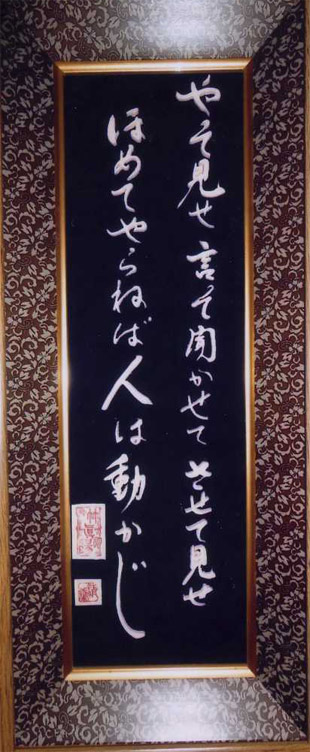 やって見せ 言って聞かせて させて見せ
ほめてやらねば 人は動かじ